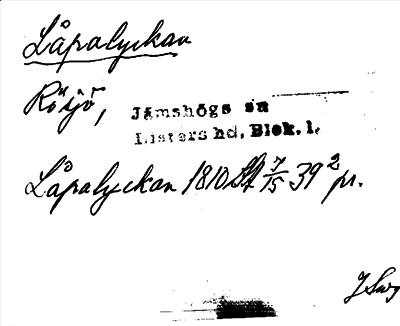 Låpalyckan
Rösjö,
Jämshögs sn
Listers hd, Blek. l.
Låpalyckan 1810 Sk 7/15 39² pr.